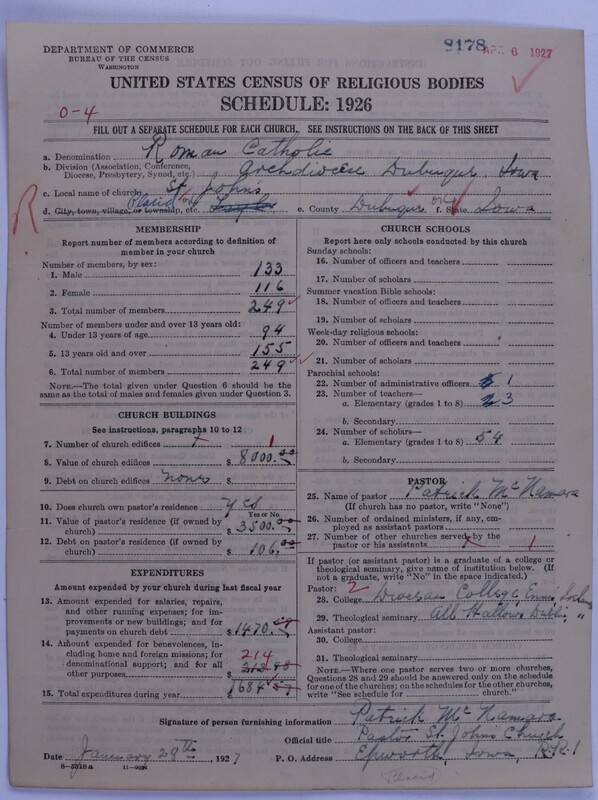 DEPARTMENT OF COMMERCE
BUREAU OF THE CENSUS
WASHINGTON
9178 APR 6 1927
UNITED STATES CENSUS OF RELIGIOUS BODIES
SCHEDULE: 1926
0-4
FILL OUT A SEPARATE SCHEDULE FOR EACH CHURCH. SEE INSTRUCTIONS ON THE BACK OF THIS SHEET
a. Denomination Roman Catholic
b. Division (Association, Conference, Diocese, Presbytery, Synod, etc.) Archdiocese Dubuque, Iowa
c. Local name of church St Johns
d. City, town, village, or township, etc. Placid
e. County Dubuque f. State Iowa
R
MEMBERSHIP
Report number of members according to definition of
member in your church
Number of members, by sex:
1. Male 133
2. Female 116
3. Total number of members 249
Number of members under and over 13 years old:
4. Under 13 years of age 94
5. 13 years old and over 155
6. Total number of members 249
NOTE.—The total given under Question 6 should be
the same as the total of males and females given under Question 3.
CHURCH BUILDINGS
See instructions, paragraphs 10 to 12
7. Number of church edifices 1
8. Value of church edifices $ 8000.00
9. Debt on church edifices none $
10. Does church own pastor's residence yes
Yes or No
11. Value of pastor's residence (if owned by
church) $ 3500.00
12. Debt on pastor's residence (if owned by
church) $ 106.00
EXPENDITURES
Amount expended by your church during last fiscal year
13. Amount expended for salaries, repairs,
and other running expenses; for im-
provements or new buildings; and for
payments on church debt $ 1470.
14. Amount expended for benevolences, in-
cluding home and foreign missions; for
denominational support; and for all
other purposes 214
15. Total expenditures during year $ 1684
CHURCH SCHOOLS
Report here only schools conducted by this church
Sunday schools:
16. Number of officers and teachers
17. Number of scholars
Summer vacation Bible schools:
18. Number of officers and teachers
19. Number of scholars
Week-day religious schools:
20. Number of officers and teachers
21. Number of scholars
Parochial schools:
22. Number of administrative officers 1
23. Number of teachers—
a. Elementary (grades 1 to 8) 3
b. Secondary
24. Number of scholars—
a. Elementary (grades 1 to 8) 54
b. Secondary
PASTOR
25. Name of pastor Patrick McNamara
(If church has no pastor, write "None")
26. Number of ordained ministers, if any, em-
ployed as assistant pastors
27. Number of other churches served by the
pastor or his assistants 1
If pastor (or assistant pastor) is a graduate of a college or
theological seminary, give name of institution below. (If
not a graduate, write "No" in the space indicated.)
Pastor: 2
28. College Diocesan College, Ennis, Ireland
29. Theological seminary All Hallows Dublin, "
Assistant pastor:
30. College
31. Theological seminary
NOTE.—Where one pastor serves two or more churches,
Questions 28 and 29 should be answered only on the schedule
for one of the churches; on the schedules for the other churches,
write "See schedule for church."
Signature of person furnishing information Patrick McNamara
Official title Pastor St. Johns Church
Date January 28th, 1927 P. O. Address Epworth, Iowa, R.R.1
8-5318a 11-9224
Placid